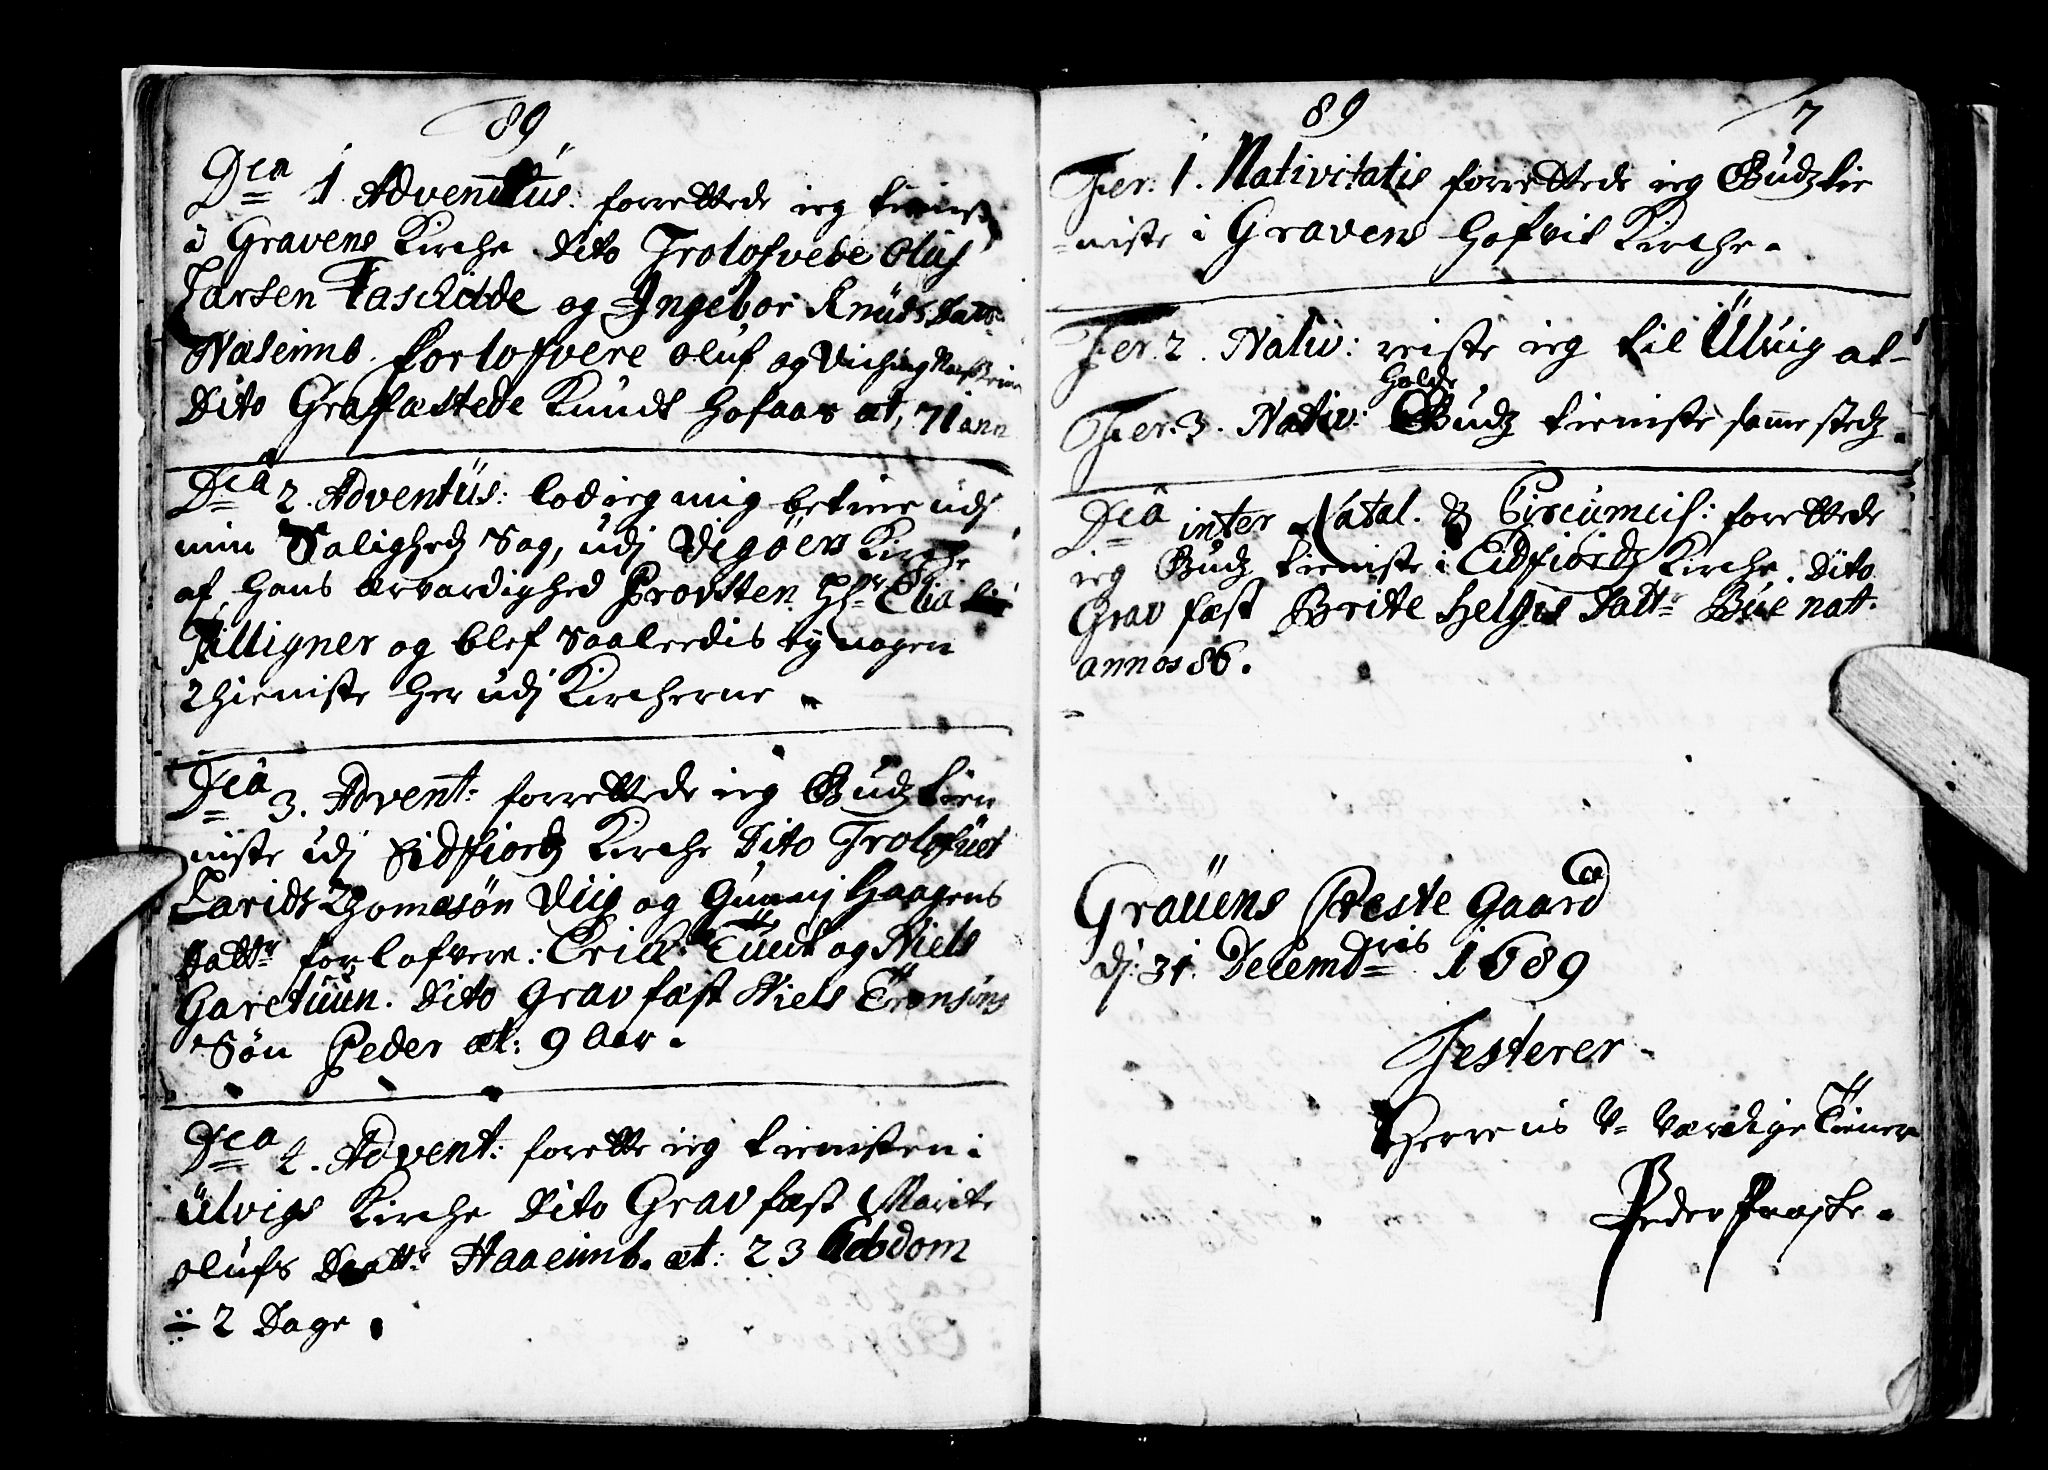 89
Dca 1 Adventus: forrettede ieg tienist
i Gravens Kirche dito Trolofvede Oluf
Larsen og Ingebor Knuds datt:
Næseimb. forlofvere oluf og Viching Næseim
dito Grafæstede Knudt Hofaas æt, 71 ann
Dca 2. Adventus: lod ieg mig betiene udj
min Salighedz Sag, udj Vigöers Kirche
af hans ærværdighed Provsten Hr
og blef saaleedis ey nogen
Thieniste her udj Kircherne.
Dca 3. Advent: forrettede ieg Gudz tien
niste udj Eidfiordz Kirche dito Trolofuet
Larids Thomæsön Viig og Gunni Haagens
datt:r forlofvere: Erick Tueit og Niels
Garetuun. dito Gravfæst Niels Tronsöns
Sön Peder æt: 9 Aar.
Dca 4. Advent: forette ieg tienisten i
Ulvigs Kirche dito Gravfæst Marite
olufs Daatt:r Haaeimb. æt: 23 hebdom
÷ 2 Dage.
89
7
Fer. 1. Nativitatis forrettede ieg Gudz tie
niste i Gravens Hofvit Kirche.
Fer. 2. Nativ: reiste ieg til Ulvig at
Holde
Fer. 3. Nativ: Gudz tieniste samme stedz.
Dca inter Natal. & Circumcis: forettede
ieg Gudz tieniste i Eidfiordz Kirche. dito
Gravfæst Brite Helges datt:r Bue natt.
annos 86.
Grauens Preste Gaard
dj: 31. Decembris 1689
Testerer
Herrens U-værdige Tiener
Peder